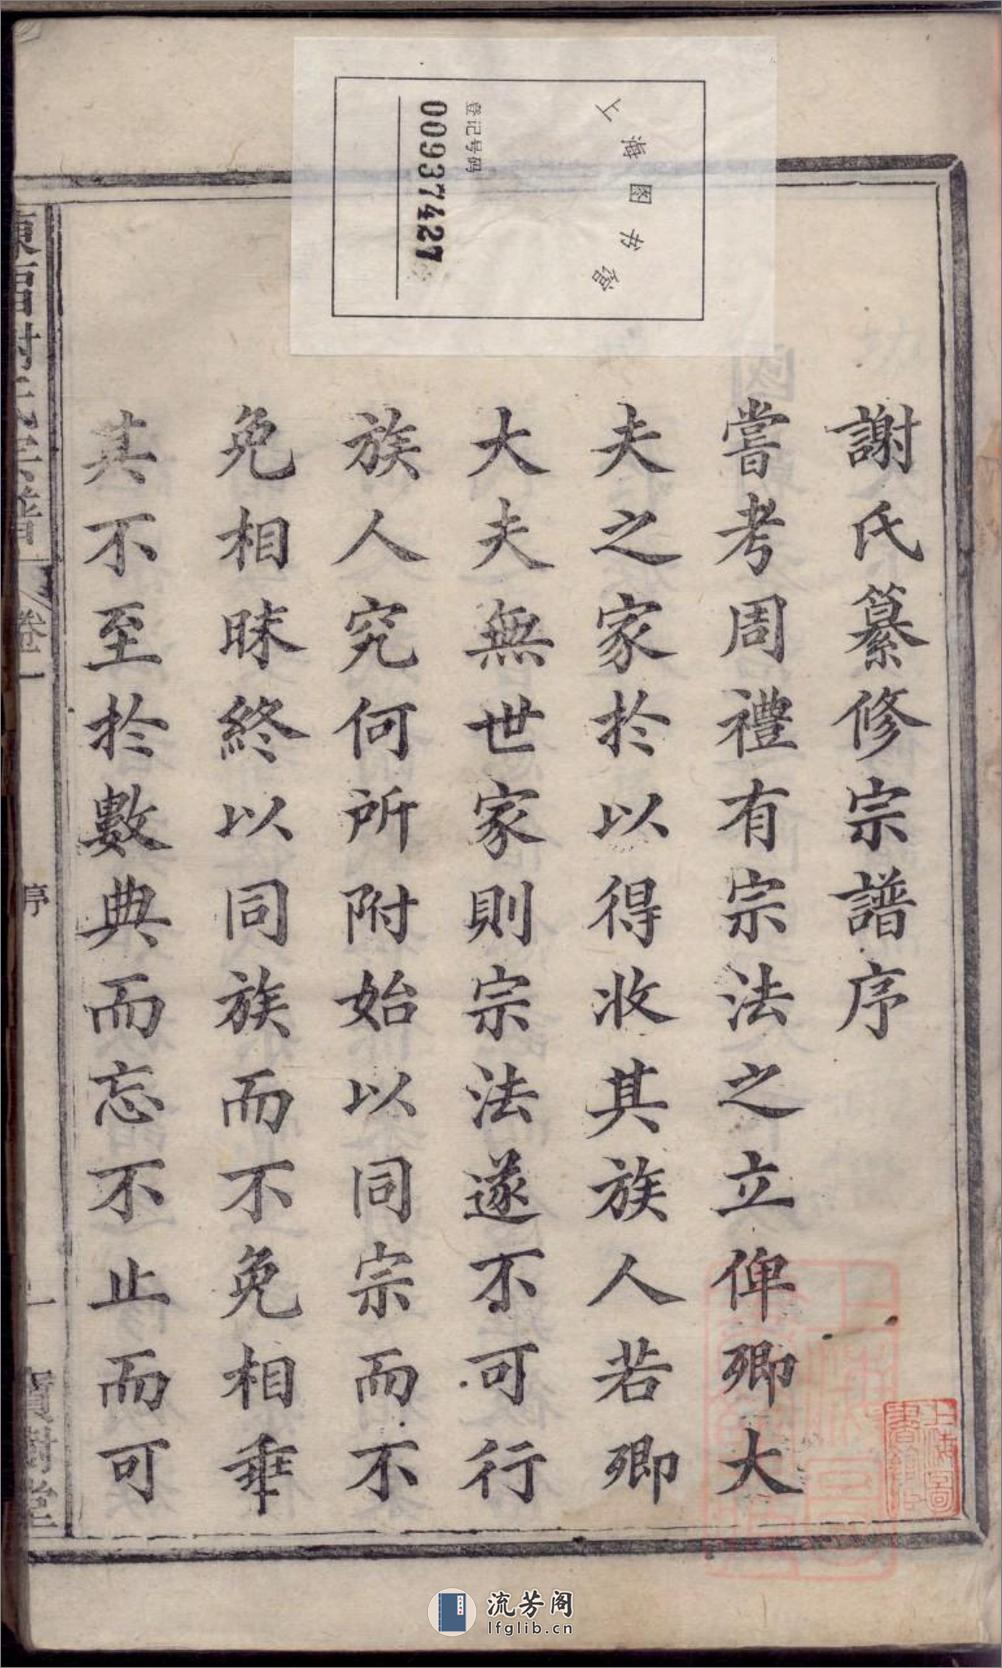 謝氏纂修宗譜序
嘗考周禮有宗法之立俾卿大
夫之家於以得收其族人若卿
大夫無世家則宗法遂不可行
族人究何所附始以同宗而不
免相昧終以同族而不免相乖
其不至於數典而忘不止而可
氏宗譜
卷一
序
一
寶樹堂
上海图书馆
登记号码
00937427
流芳阁
lfglib.cn